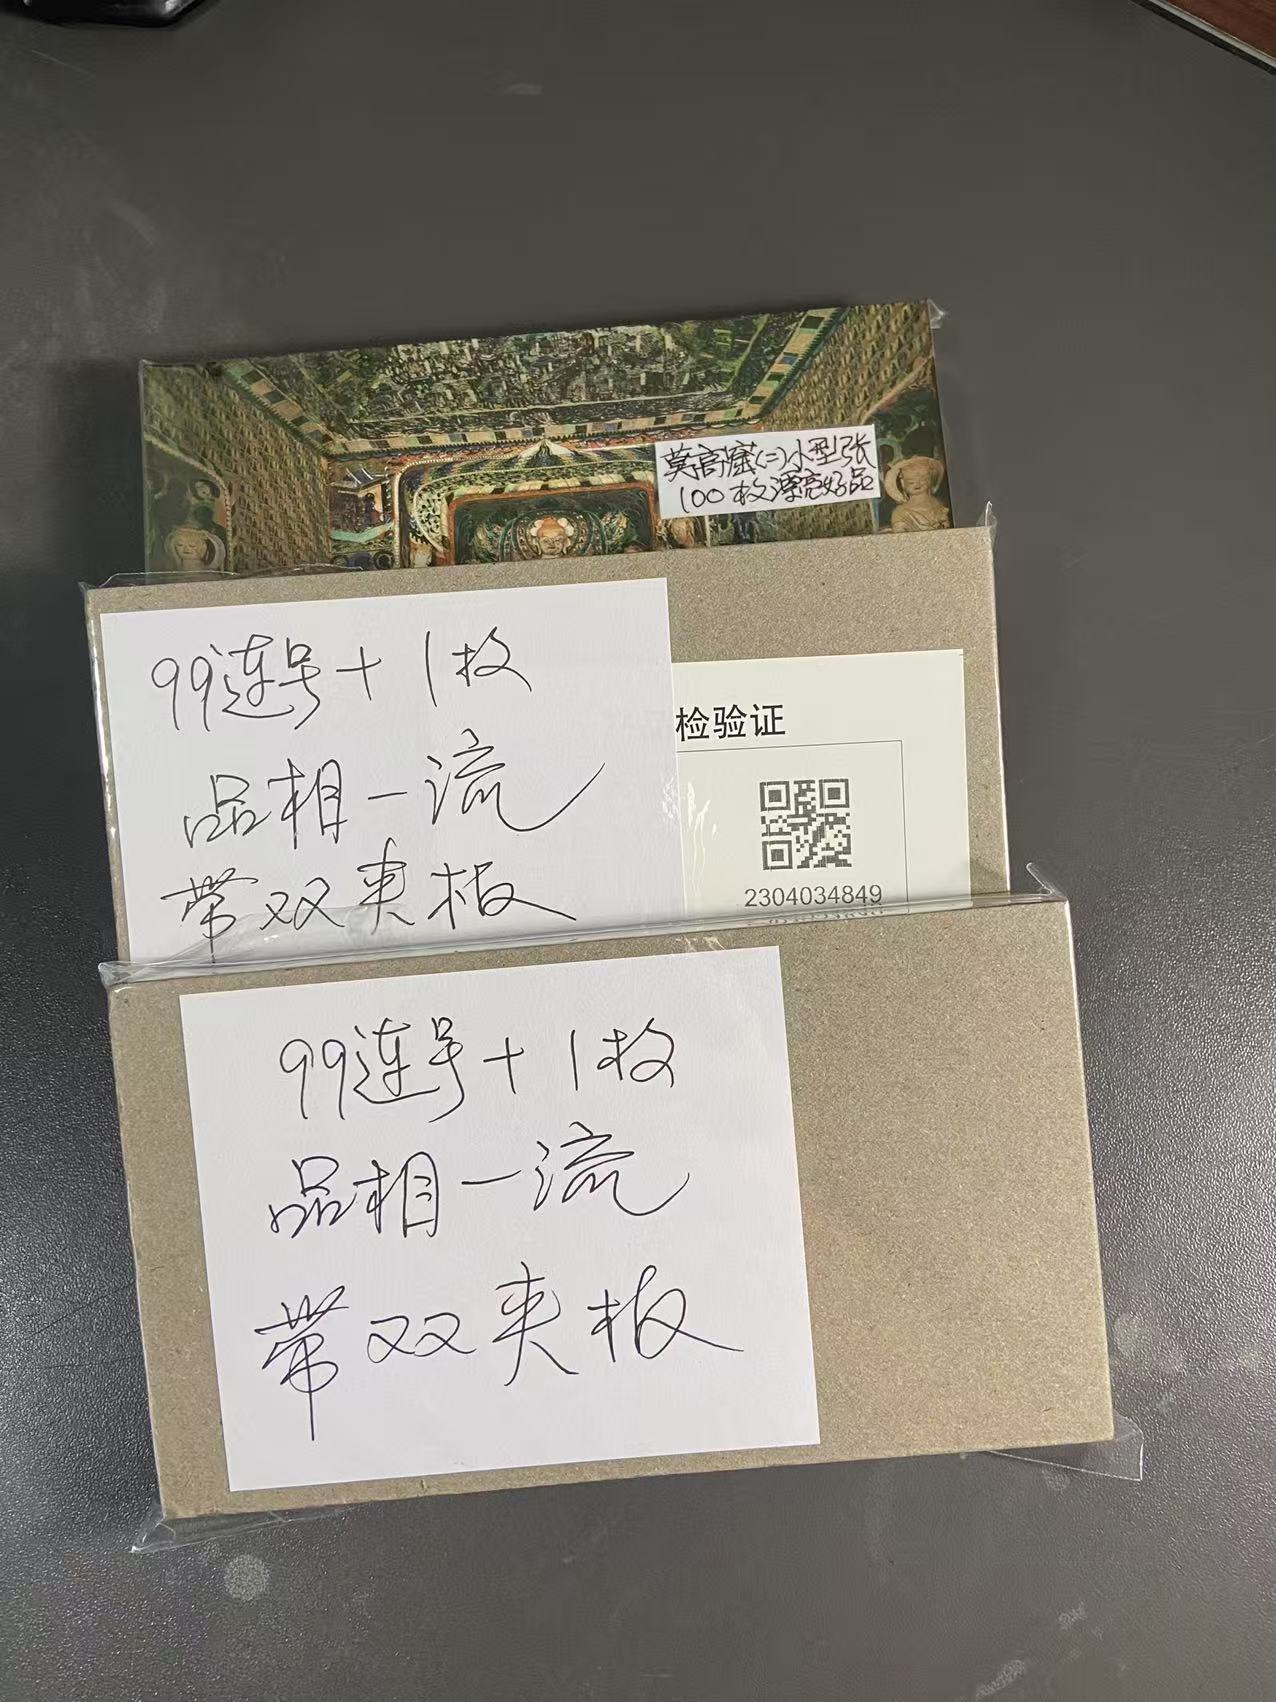 莫高窟(二)小型张
100枚漂亮好品
99连号+1枚
品相一流
带双夹板
检验证
2304034849
99连号+1枚
品相一流
带双夹板